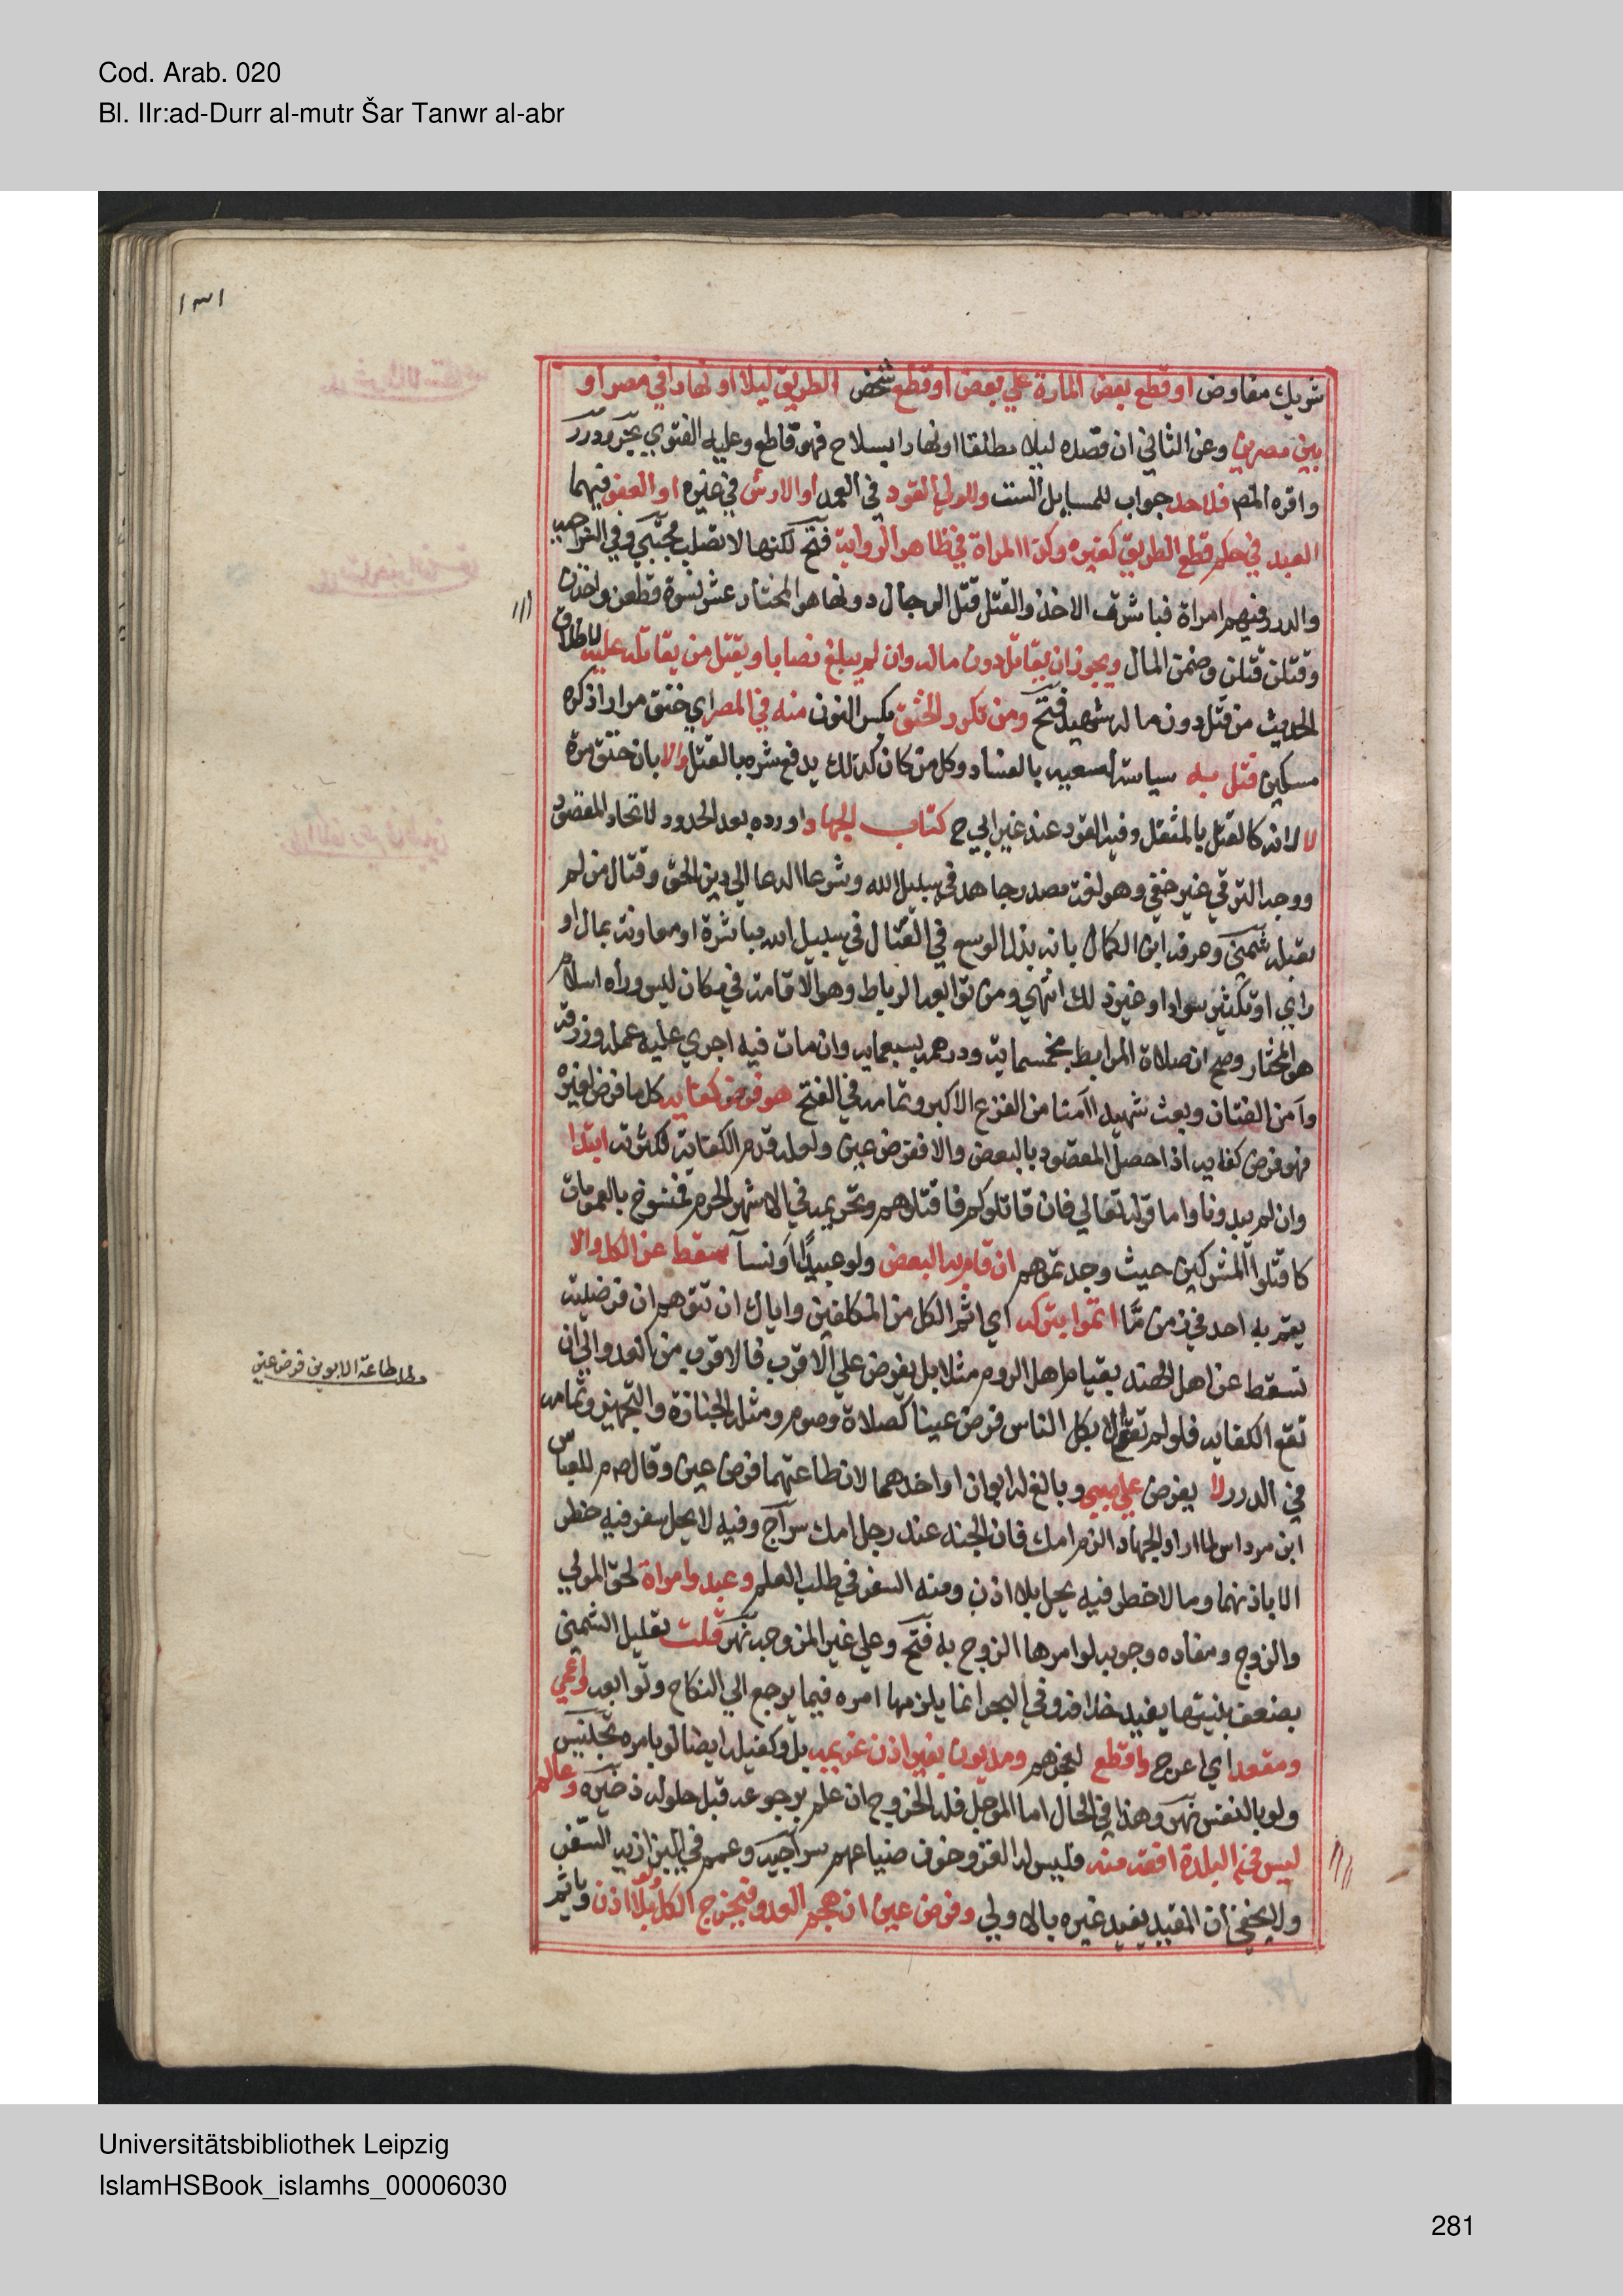 Cod. Arab. 020
Bl. IIr:ad-Durr al-mutr Šar Tanwr al-abr
١٣١
شريك مفاوض او قطع بعض المارة علي بعض او قطع شخص الطريق ليلا او نهارا في مصر او
بين مصرين وعن الثاني ان قصده ليلا مطلقا او نهارا بسلاح فهو قاطع وعليه الفتوي بحر ودرر
واقره المص فلا حد جواب للمسايل الست وللولي القود في العمد او الارش في غيره او العفو فيهما
العبد في حكم قطع الطريق كغيره وكذا المراة في ظاهر الرواية فتح لكنها لا تصلب مجتبي وفي السراجيه
والدرر فيهم امراة فباشرت الاخذ والقتل قتل الرجال دونها هو المختار عشر نسوة قطعن واخذن
وقتلن قتلن وضمن المال ويجوز ان يقاتل دون ماله وان لم يبلغ نصابا ويقتل من يقاتله عليه لاطلاق
الحديث من قتل دون ماله شهيد فتح ومن تكرر الخنق بكسر النون منه في المصر اي خنق مرارا ذكره
مسكين قتل به سياسة لسعيه بالفساد وكل من كان كذلك يدفع شره بالقتل والا بان خنق مرة
لا لانه كالقتل بالمثقل وفيه القود عند غير ابي ح كتاب الجهاد اورده بعد الحدود لاتحاد المقصود
ووجه الترقي غير خفي وهو لغة مصدر جاهد في سبيل الله وشرعا الدعا الي دين الحق وقتال من لم
يقبله شمني وعرفه ابن الكمال بانه بذل الوسع في القتال في سبيل الله مباشرة او معاونة بمال او
راي او تكثير سواد او غير ذلك انتهي ومن توابعه الرباط وهو الاقامة في مكان ليس وراه اسلام
هو المختار وصح ان صلاة المرابط بخمسماية ودرهمه بسبعمايه وان مات فيه اجري عليه عمله ورزقه
وآمن الفتان وبعث شهيدا آمنا من الفزع الاكبر وتمامه في الفتح هو فرض كفايه كل ما فرض لغيره
فهو فرض كفايه اذا حصل المقصود بالبعض والا ففرض عين ولعله قدم الكفاية لكثرته ابتدا
وان لم يبدونا واما قوله تعالي فان قاتلوكم فاقتلوهم وتحريمه في الاشهر الحرم فمنسوخ بالعمومات
كاقتلوا المشركين حيث وجدتموهم ان قام به البعض ولو عبيدا او نسآ سقط عن الكل والا
يقم به احد في زمن ما اثموا بتركه اي اثم الكل من المكلفين واياك ان تتوهم ان فرضيته
تسقط عن اهل الهند بقيام اهل الروم مثلا بل يفرض علي الاقرب فالاقرب من العدو الي ان
تقع الكفايه فلو لم تقع الا بكل الناس فرض عينا كصلاة وصوم ومثله الجنازة والتجهيز وتمامه
في الدرر لا يفرض علي صبي وبالغ له ابوان او احدهما لان طاعتهما فرض عين وقال صم للعباس
ابن مرداس لما اراد الجهاد الزم امك فان الجنه عند رجل امك سراج وفيه لا يحل سفر فيه خطر
الا باذنهما وما لا خطر فيه يحل بلا اذن ومنه السفر في طلب العلم وعبد وامراة لحق المولي
والزوج ومفاده وجوبه لو امرها الزوج به فتح وعلي غير المزوجه نهر قلت تعليل الشمني
بضعف بنيتها يفيد خلافه وفي البحر انما يلزمها امره فيما يرجع الي النكاح وتوابعه واعمي
ومقعد اي اعرج واقطع لعجزهم ومديون بغير اذن غريمه بل وكفيله ايضا لو بامره تجنيس
ولو بالنفس نهر وهذا في الحال اما الموجل فله الخروج ان علم برجوعه قبل حلوله ذخيره وعالم
ليس في البلدة افقه منه فليس له الغزو خوف ضياعهم سراجيه وعمم في البزازيه السفر
ولا يخفي ان المقيد يفيد غيره بالاولي وفرض عين ان هجم العدو فيخرج الكل ولو بلا اذن وياثم
ولما طاعة الابوين فرض عين
Universitätsbibliothek Leipzig
IslamHSBook_islamhs_00006030
281